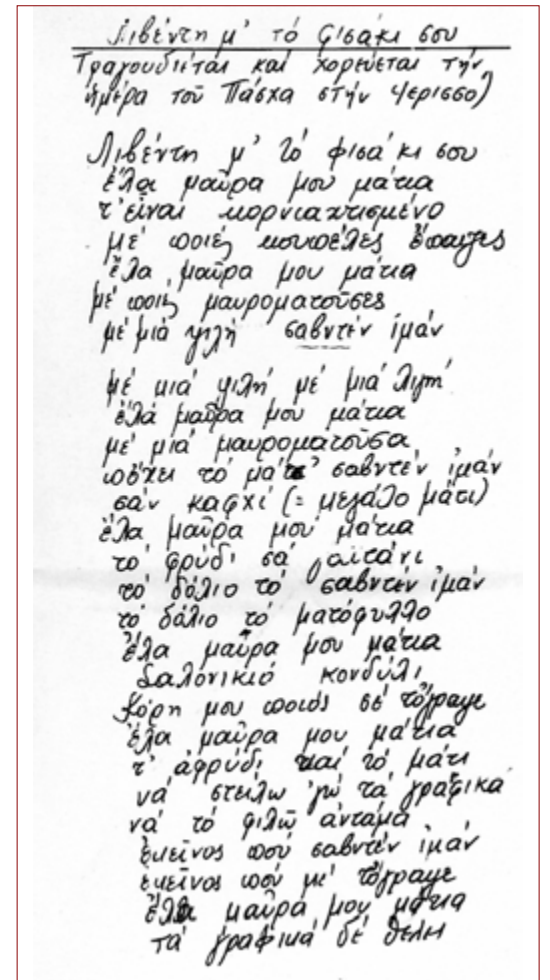 Λιβέντη μ' τό φισάκι σου
Τραγουδιέται καί χορεύεται τήν
ἡμέρα τοῦ Πάσχα στήν Ἱερισσό)
Λιβέντη μ' τό φισάκι σου
ἔλα μαῦρα μου μάτια
τ' εἶναι κορνιαχτισμένο
μέ ποιές κουπέλες ἔπαιζες
ἔλα μαῦρα μου μάτια
μέ ποιές μαυροματοῦσες
μέ μιά ψιλή σαβντέν ἰμάν
μέ μιά ψιλή μέ μιά λιγνή
ἔλα μαῦρα μου μάτια
μέ μιά μαυροματοῦσα
πὄχει τό μάτ' σαβντέν ἰμάν
σάν καφχί (= μεγάλο μάτι)
ἔλα μαῦρα μου μάτια
τό φρύδι σά γαϊτάνι
τό δόλιο τό σαβντέν ἰμάν
τό δόλιο τό ματόφυλλο
ἔλα μαῦρα μου μάτια
σαλονικιό κονδύλι
Κόρη μου ποιός σέ τὄγραψε
ἔλα μαῦρα μου μάτια
τ' ἀφρύδι καί τό μάτι
νά στείλω 'γώ τά γραφικά
νά τό φιλῶ ἀντάμα
ἐκεῖνος πού σαβντέν ἰμάν
ἐκεῖνος πού μέ τὄγραψε
ἔλα μαῦρα μου μάτια
τά γραφικά δέ θέλει